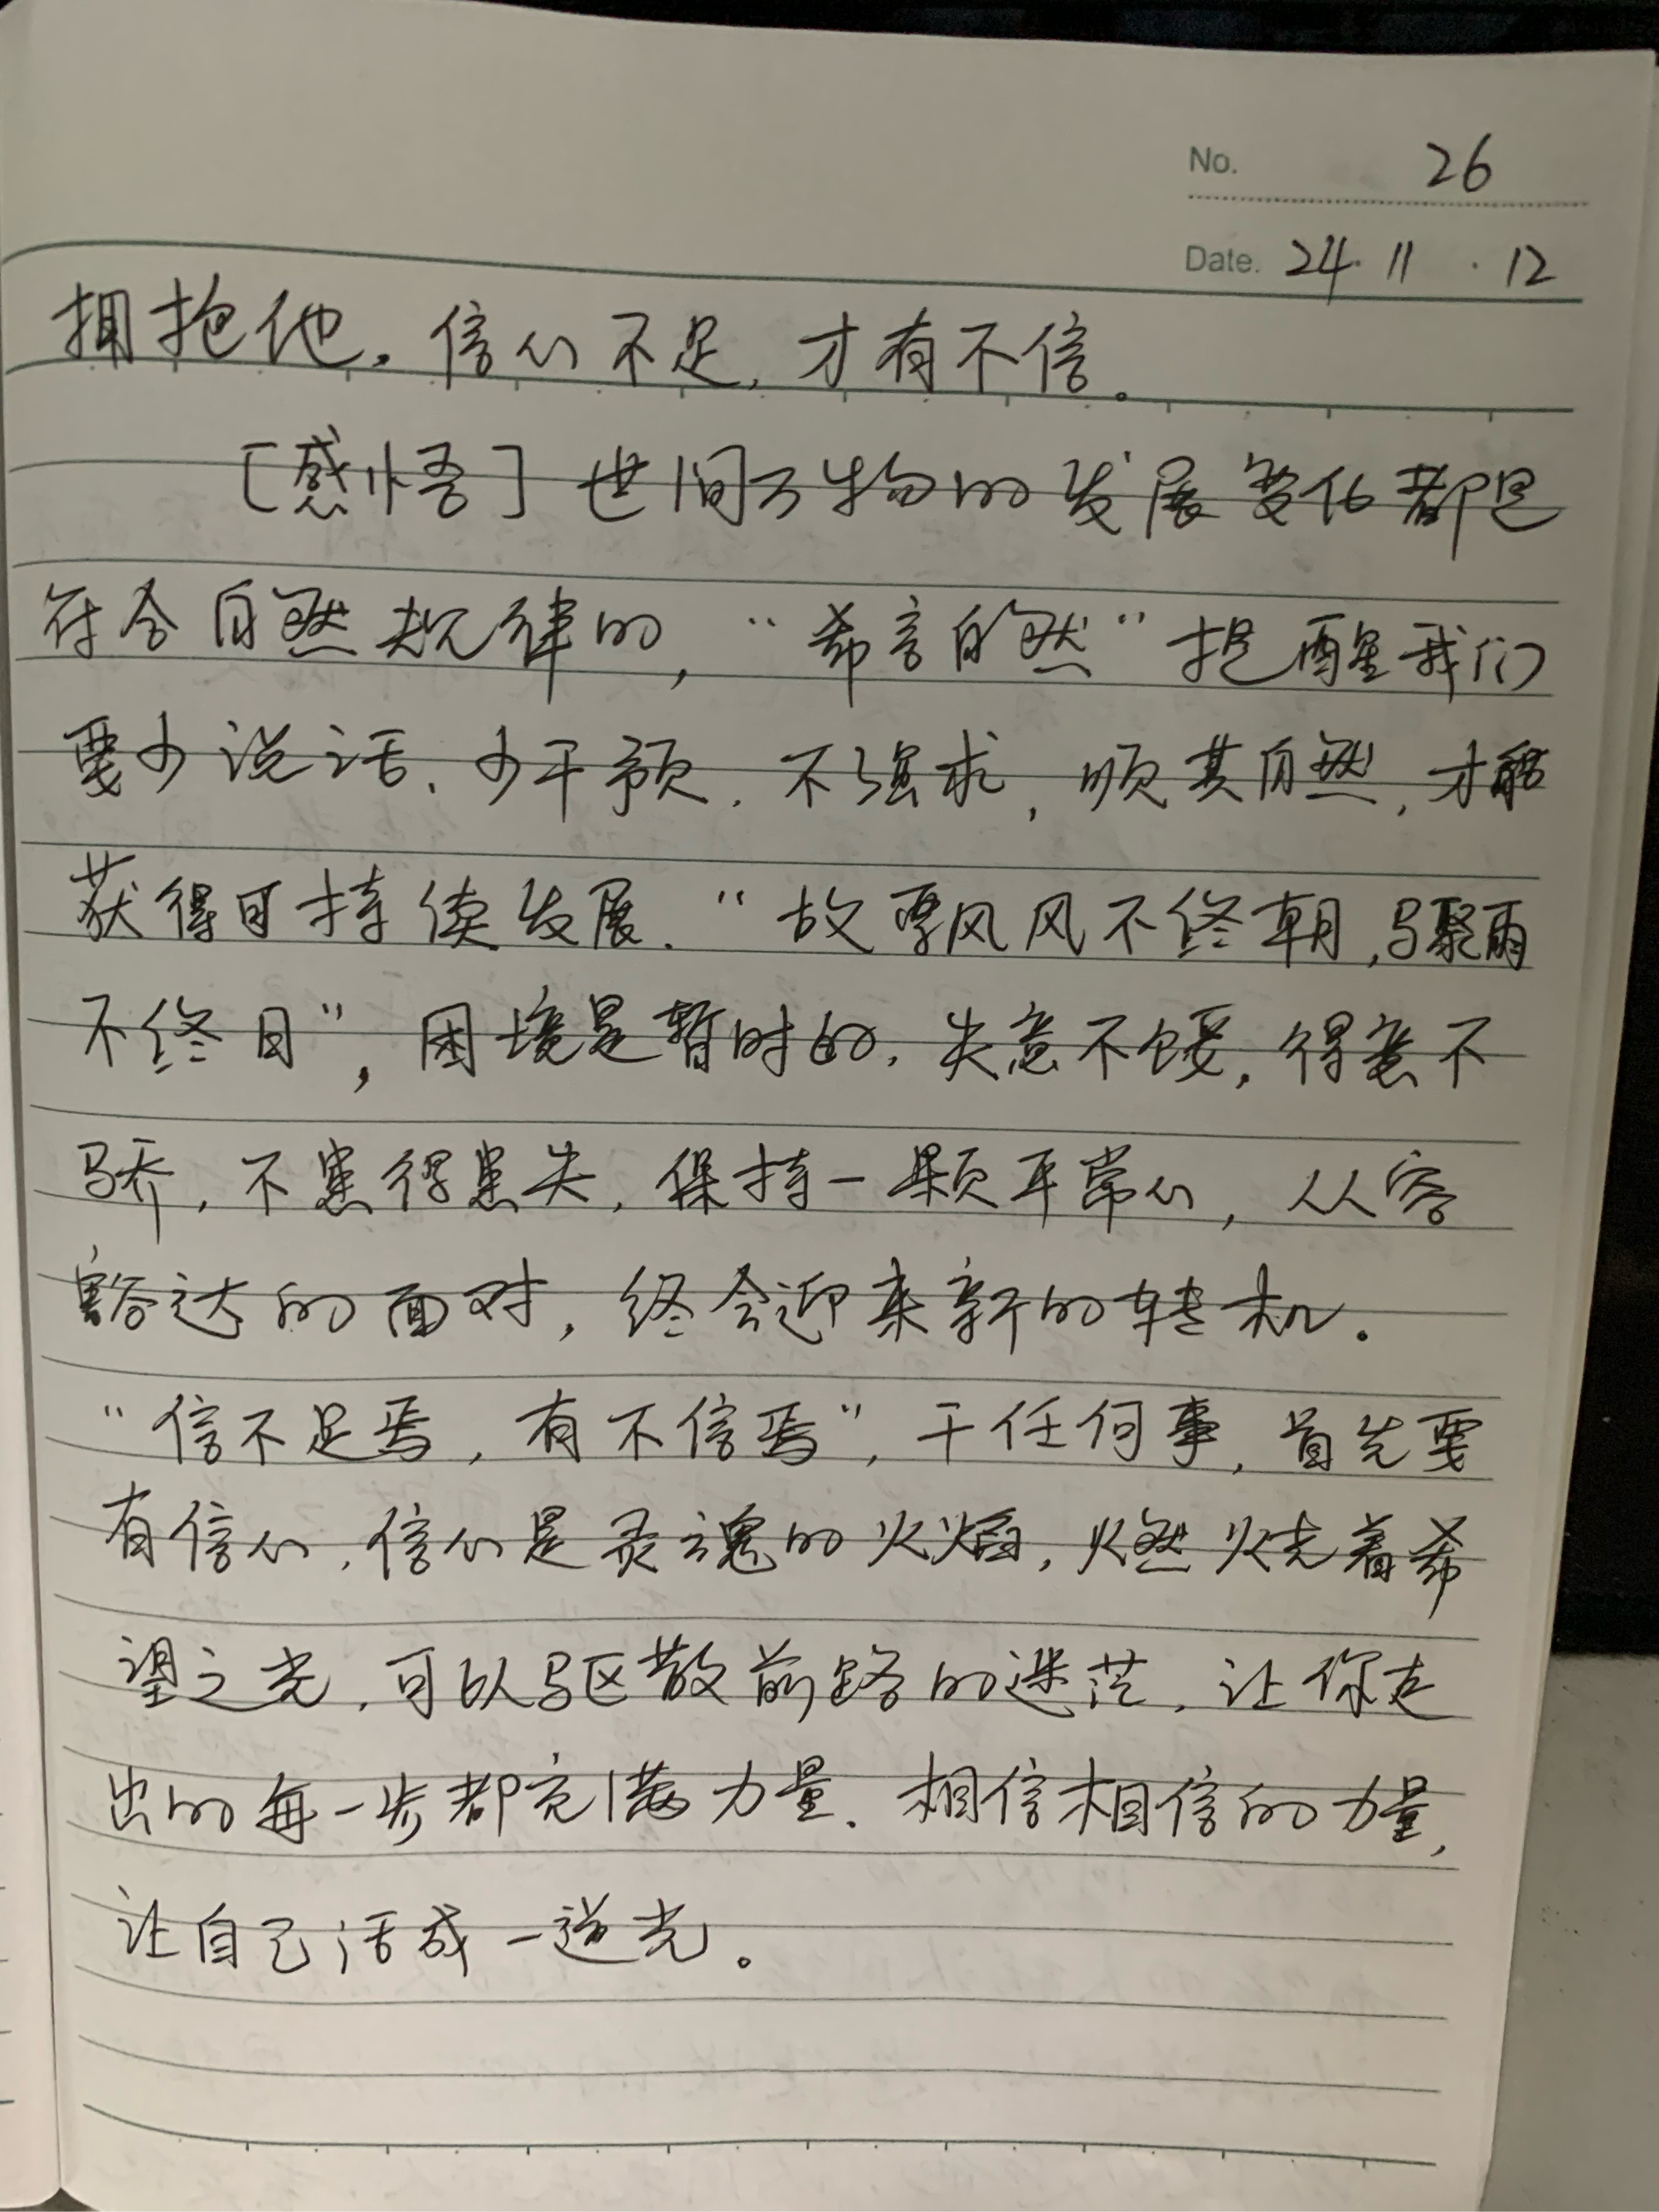 No. 26
Date. 24.11.12
拥抱他。信心不足，才有不信。
[感悟]世间万物的发展变化都是
符合自然规律的，“希言自然”提醒我们
要少说话、少干预、不强求，顺其自然，才能
获得可持续发展.“故飘风风不终朝，骤雨
不终日”，困境是暂时的，失意不馁，得意不
骄，不患得患失，保持一颗平常心，从容
豁达的面对，终会迎来新的转机.
“信不足焉，有不信焉”，干任何事，首先要
有信心，信心是灵魂的火焰，燃烧着希
望之光，可以驱散前路的迷茫，让你走
出的每一步都充满力量.相信相信的力量，
让自己活成一道光。